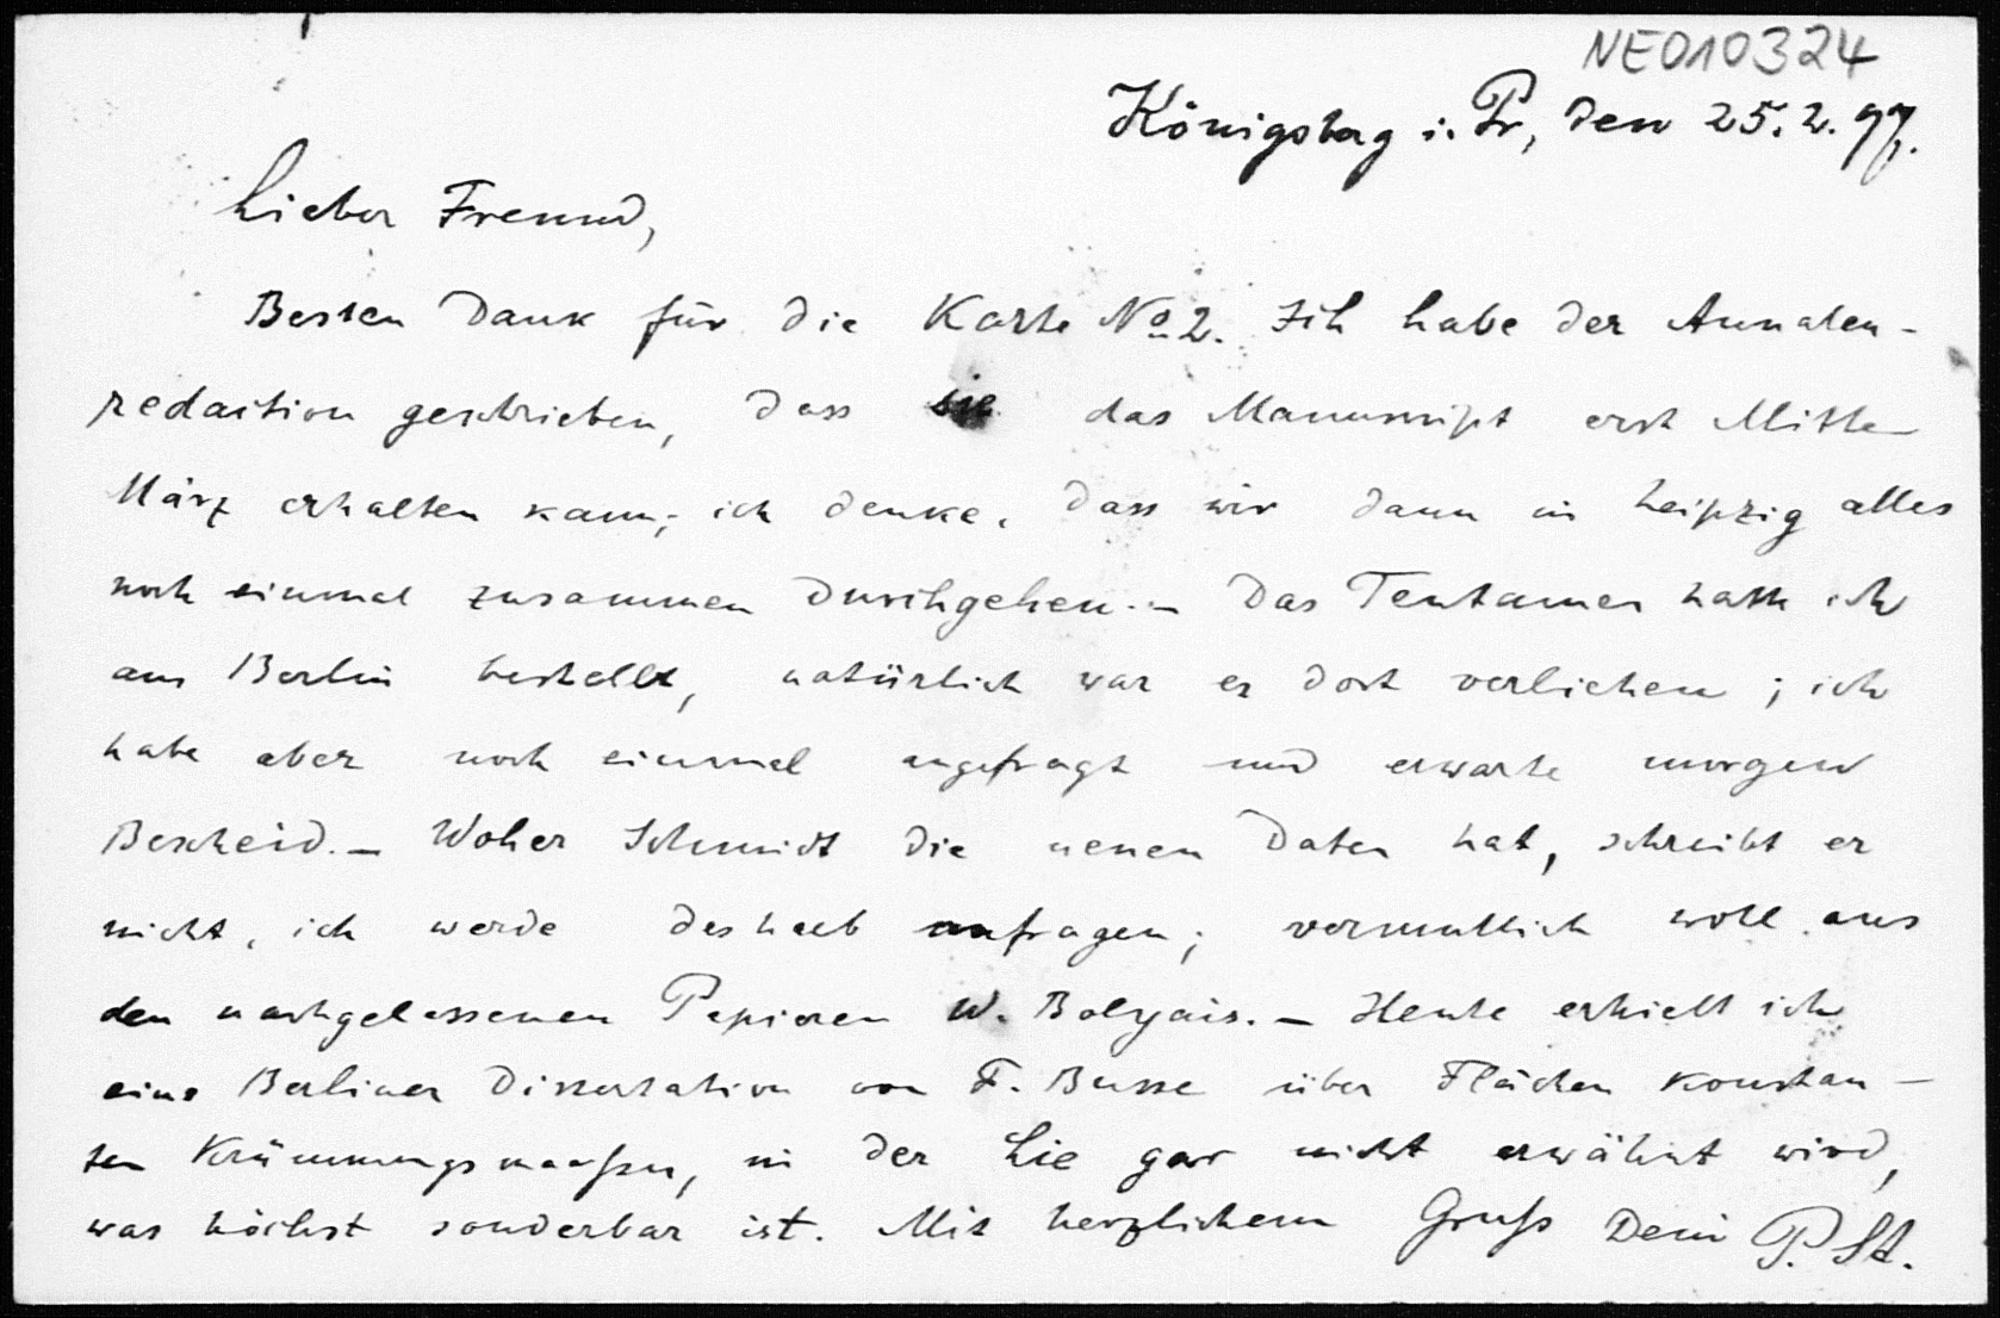 NE010324
Königsberg i. Pr, den 25.2.97.
Lieber Freund,
Besten Dank für die Karte No 2. Ich habe der Annalen-
redaction geschrieben, dass sie das Manuscript erst Mitte
März erhalten kann; ich denke, dass wir dann in Leipzig alles
noch einmal zusammen durchgehen. – Das Tentamen hatte ich
aus Berlin bestellt, natürlich war es dort verliehen; ich
habe aber noch einmal angefragt und erwarte morgen
Bescheid. – Woher Schmidt die neuen Daten hat, schreibt er
nicht, ich werde deshalb anfragen; vermuthlich wohl aus
den nachgelassenen Papieren W. Bolyais. – Heute erhielt ich
eine Berliner Dissertation von F. Busse über Flächen konstan-
ten Krümmungsmaasses, in der Lie gar nicht erwähnt wird,
was höchst sonderbar ist. Mit herzlichem Gruß Dein P. St.